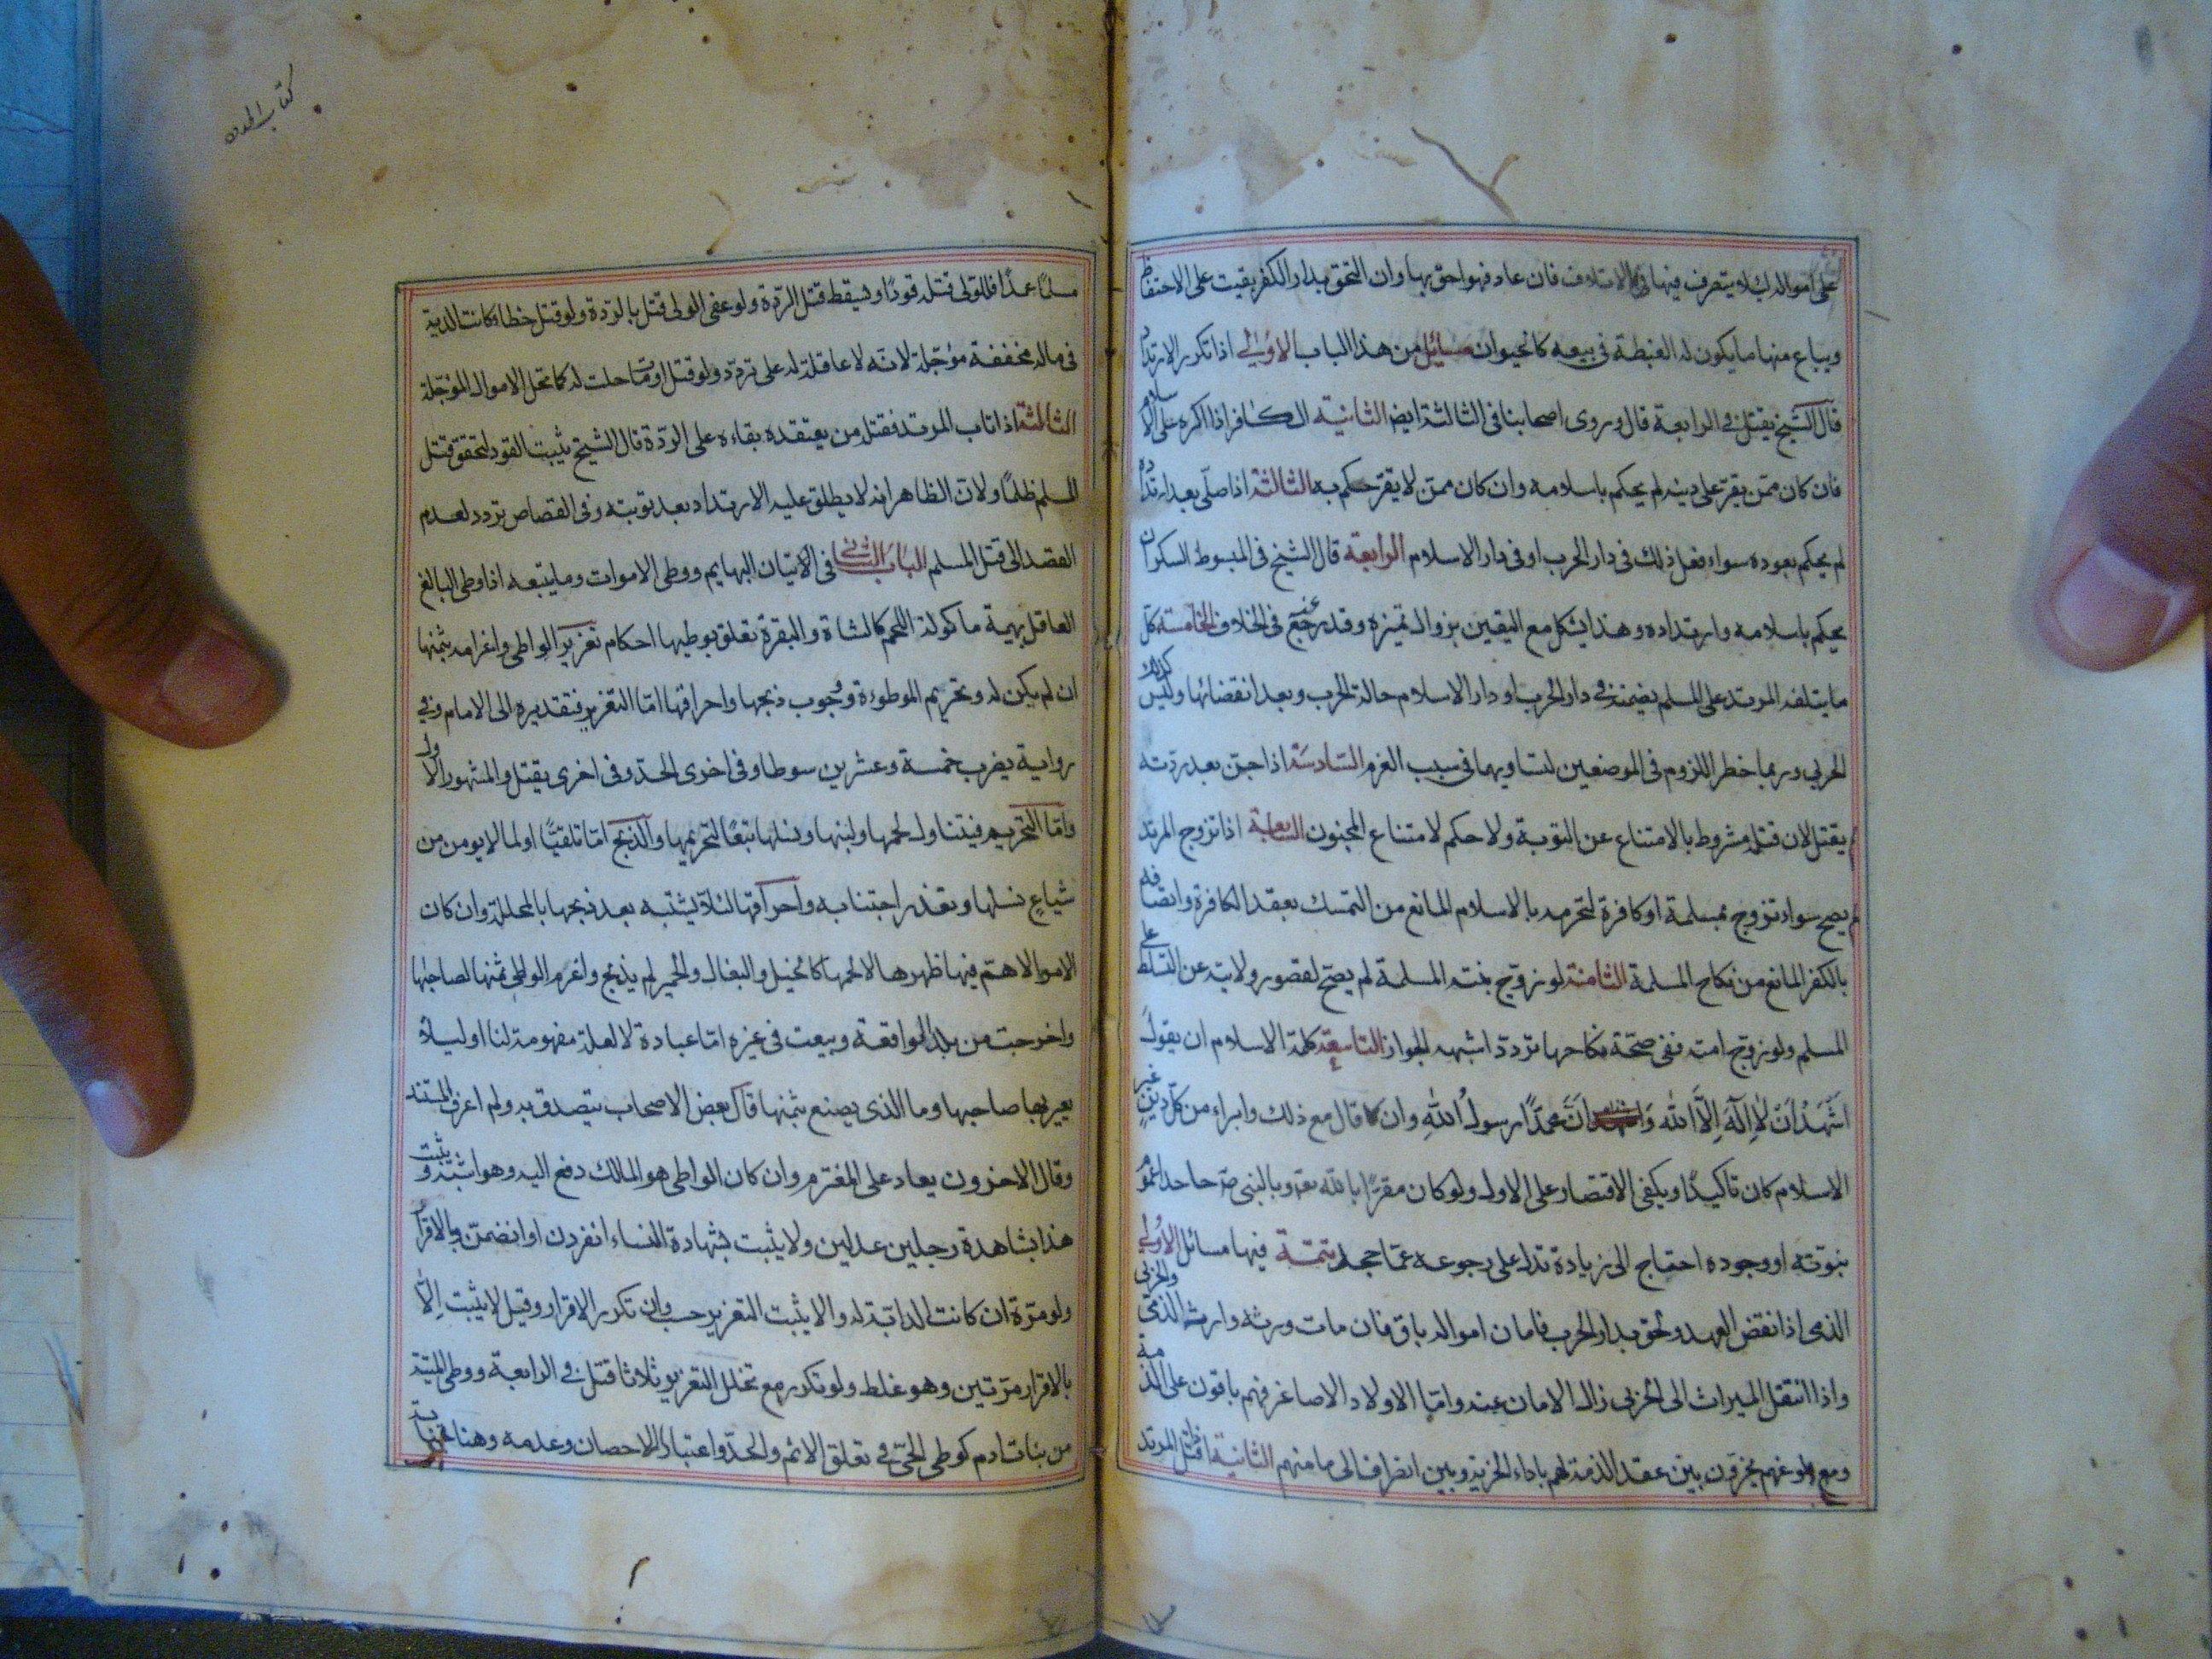 على امواله لئلا يتصرف فيها بالاتلاف فان عاد فهو احق بها وان التحق بدار الكفر بقيت على الاحتفاظ
ويباع منها ما يكون له الغبطة في بيعه كالحيوان مسائل من هذا الباب الاولى اذا تكرر الارتداد
قال الشيخ يقتل في الرابعة قال وروى اصحابنا في الثالثة ايضا الثانية الكافر اذا اكره على الاسلام
فان كان ممن يقر على دينه لم يحكم باسلامه وان كان ممن لا يقر حكم به الثالثة اذا صلى بعد ارتداده
لم يحكم بعوده سواء فعل ذلك في دار الحرب او في دار الاسلام الرابعة قال الشيخ في المبسوط السكران
يحكم باسلامه وارتداده وهذا يشكل مع اليقين بزوال تميزه وقد رجع عنه في الخلاف الخامسة كل
ما يتلفه المرتد على المسلم يضمنه في دار الحرب او دار الاسلام حالة الحرب وبعد انقضائها وليس كذلك
الحربي وربما خطر اللزوم في الموضعين لتساويهما في سبب الغرم السادسة اذا جن بعد ردته
لم يقتل لان قتله مشروط بالامتناع عن التوبة ولا حكم لامتناع المجنون السابعة اذا تزوج المرتد
لم يصح سواء تزوج بمسلمة او كافرة لتحرمه بالاسلام المانع من التمسك بعقد الكافرة واتصافه
بالكفر المانع من نكاح المسلمة الثامنة لو زوج بنته المسلمة لم يصح لقصور ولايته عن التسلط على
المسلم ولو زوج امته ففي صحة نكاحها تردد اشبهه الجواز التاسعة كلمة الاسلام ان يقول
اشهد ان لا اله الا الله وان محمدا رسول الله وان قال مع ذلك وابراء من كل دين غير
الاسلام كان تاكيدا ويكفي الاقتصار على الاول ولو كان مقرا بالله تع وبالنبي ص جاحدا عموم
نبوته او وجوده احتاج الى زيادة تدل على رجوعه عما جحده تتمة فيها مسائل الاولى
الذمي اذا نقض العهد ولحق بدار الحرب فامان امواله باق فان مات ورثه وارثه الذمي والحربي
واذا انتقل الميراث الى الحربي زال الامان عنه واما الاولاد الاصاغر فهم باقون على الذمة
ومع بلوغهم يخيرون بين عقد الذمة لهم باداء الجزية وبين انصراف الى مامنهم الثانية اذا قتل المرتد
كتاب الحدود
مسلما عمدا فللولي قتله قودا ويسقط قتل الردة ولو عفى الولي قتل بالردة ولو قتل خطاء كانت الدية
في ماله مخففة مؤجلة لانه لا عاقلة له على تردد ولو قتل او مات حلت له كما تحل الاموال المؤجلة
الثالثة اذا تاب المرتد فقتل من يعتقده بقاءه على الردة قال الشيخ يثبت القود لتحقق قتل
المسلم ظلما ولان الظاهر انه لا يطلق عليه الارتداد بعد توبته وفي القصاص تردد لعدم
القصد الى قتل المسلم الباب الثاني في الاتيان البهايم ووطي الاموات وما يتبعه اذا وطي البالغ
العاقل بهيمة ماكولة اللحم كالشاة والبقرة تعلق بوطيها احكام تعزير الواطي واغرامه بثمنها
ان لم يكن له وتحريم الموطوءة ووجوب ذبحها واحراقها اما التعزير فتقديره الى الامام وفي
رواية يضرب خمسة وعشرين سوطا وفي اخرى الحد وفي اخرى يقتل والمشهور الاول
واما التحريم فيتناول لحمها ولبنها ونسلها تبعا لتحريمها والذبح اما تلقيا او لما لا يومن من
شياع نسلها وتعذر اجتنابه واحراقها لئلا يشتبه بعد ذبحها بالمحللة وان كان
الامر الاهم فيها ظهرها لا لحمها كالخيل والبغال والحمير لم يذبح واغرم الواطي ثمنها لصاحبها
واخرجت من بلد الواقعة وبيعت في غيره اما عبادة لا لعلة مفهومة لنا او ليلا
يعير بها صاحبها وما الذي يصنع بثمنها قال بعض الاصحاب يتصدق به ولم اعرف المستند
وقال الاخرون يعاد على المغترم وان كان الواطي هو المالك دفع اليه وهو اشبه ويثبت
هذا بشاهدة رجلين عدلين ولا يثبت بشهادة النساء انفردن او انضممن وبالاقرار
ولو مرة ان كانت الدابة له والا يثبت التعزير حسب وان تكرر الاقرار وقيل لا يثبت الا
بالاقرار مرتين وهو غلط ولو تكرر مع تخلل التعزير ثلاثا قتل في الرابعة ووطي الميتة
من بنات ادم كوطي الحي في تعلق الاثم والحد واعتبار الاحصان وعدمه وهنا